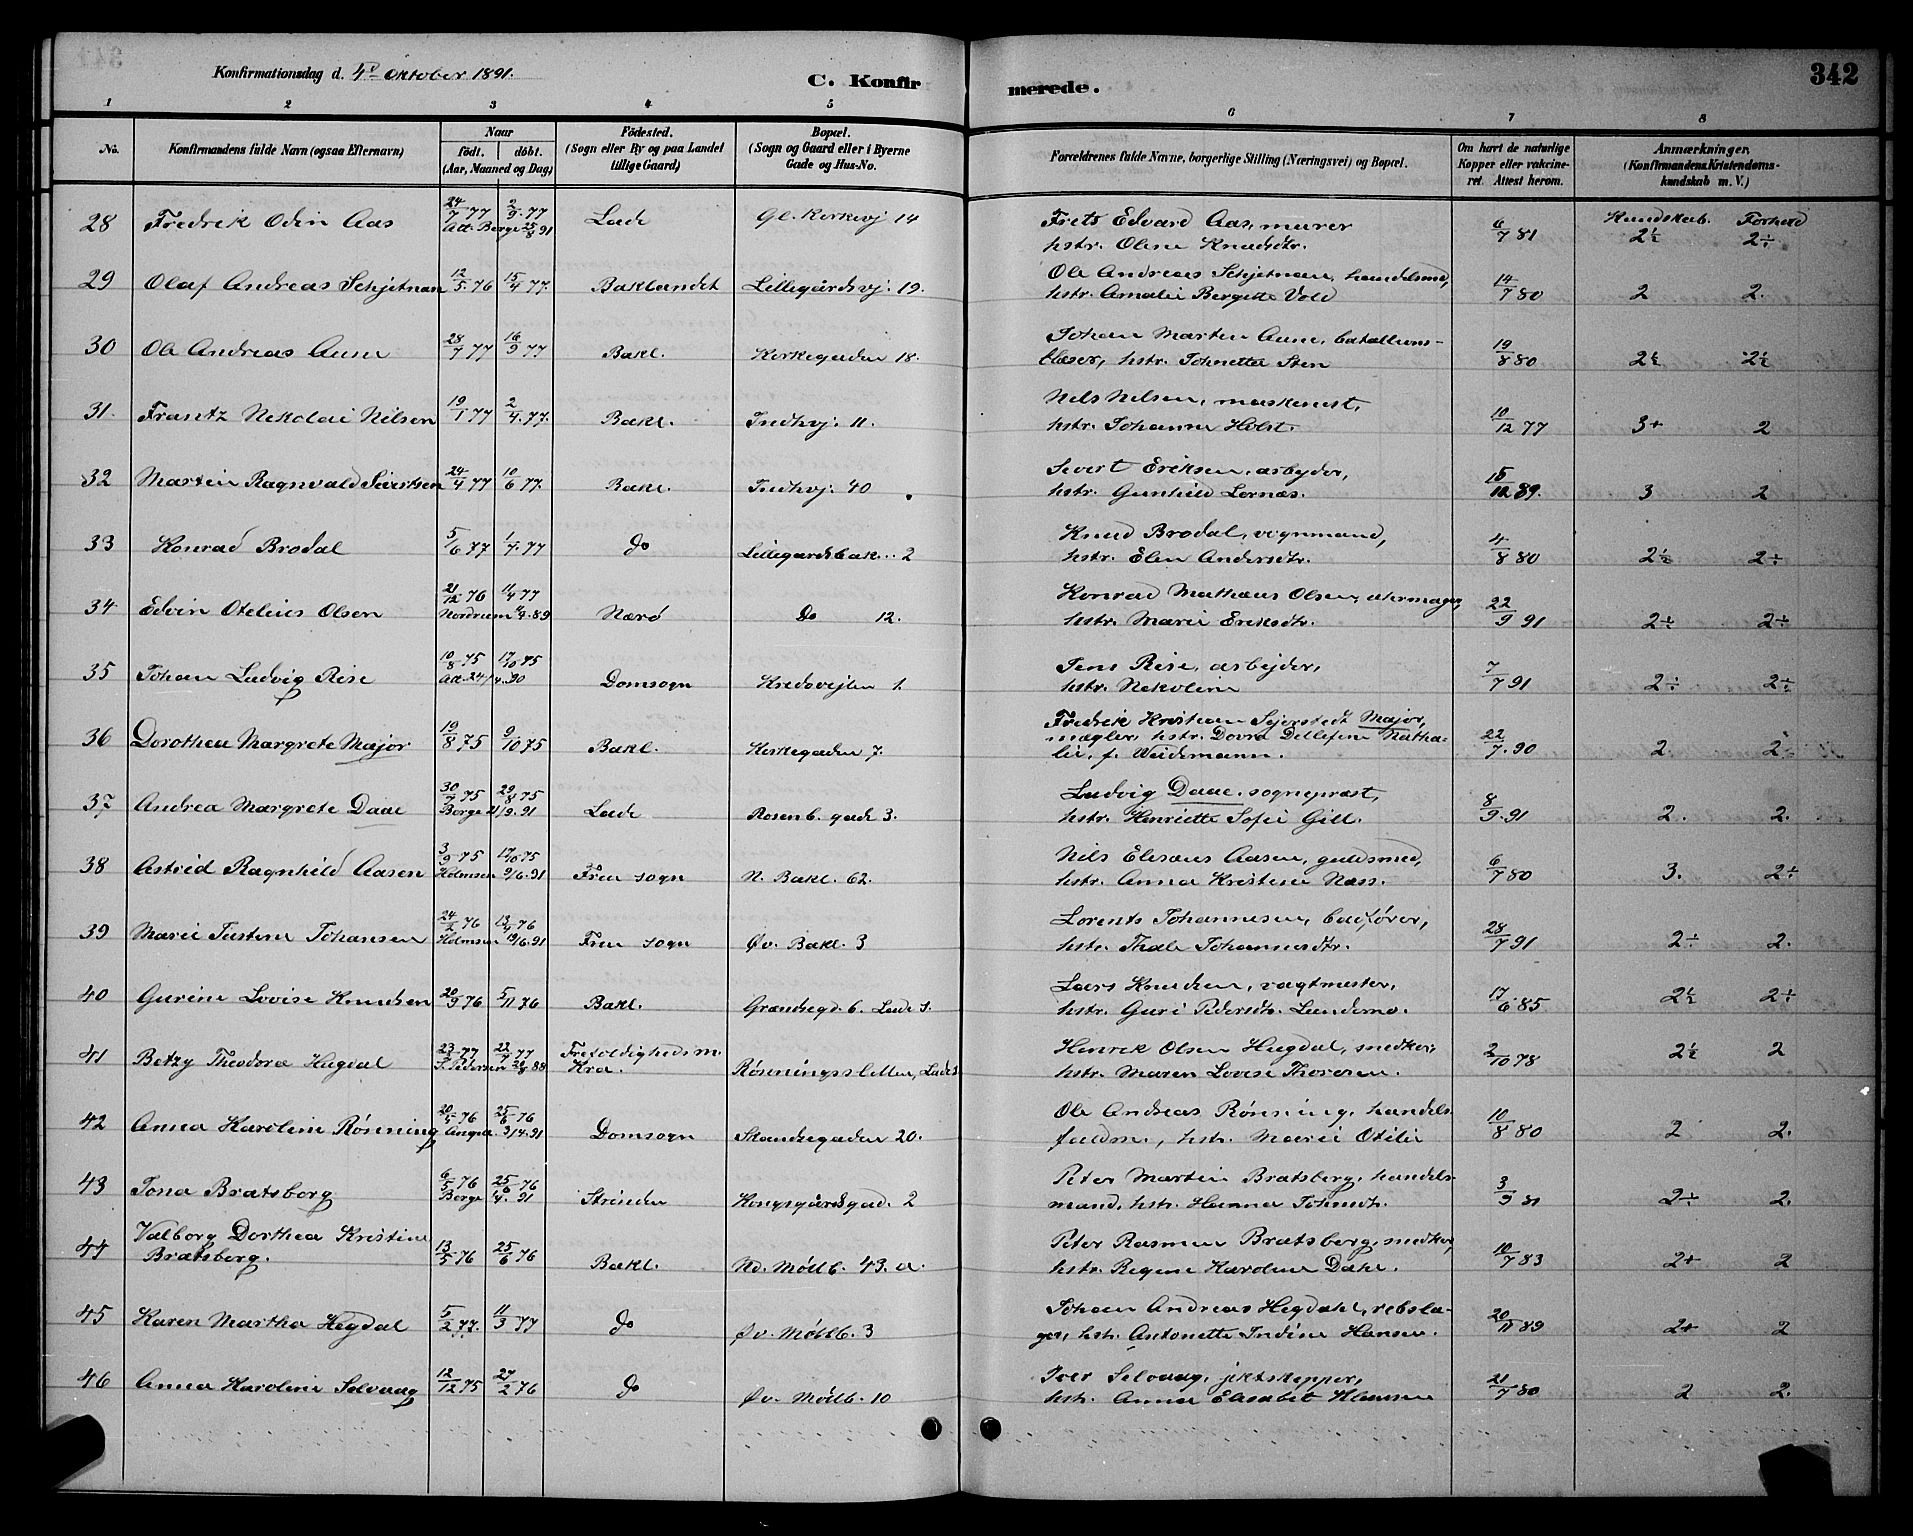 Konfirmationsdag d. 4de Oktober 1891. C. Konfirmerede. 342
1 2 3 4 5 6 7 8
No. Konfirmandens fulde Navn (ogsaa Efternavn) Naar født. døbt. (Aar, Maaned og Dag) Fødested. (Sogn eller By og paa Landet tillige Gaard) Bopæl. (Sogn og Gaard eller i Byerne Gade og Hus-No. Forældrenes fulde Navne, borgerlige Stilling (Næringsvei) og Bopæl. Om havt de naturlige Kopper eller vakcineret. Attest herom. Anmærkninger. (Konfirmandens Kristendomskundskab m. V.)
Kundskab. Forhold
28 Fredrik Odin Aas 24/7 77 2/9 77 Lade Gl. Kirkevj 14 Frets Edvard Aas, murer 6/7 81 2½ 2÷
Ad. Berge 25/8 91 hstr. Oline Knudsdtr.
29 Olaf Andreas Schjetnan 12/5 76 15/4 77. Baklandet Lillegårdsvj. 19. Ole Andreas Schjetnan, handelsmd, 14/7 80 2 2.
hstr. Amalie Bergitte Vold
30 Ole Andreas Aune 28/7 77 16/9 77 Bakl. Kirkegaden 18. Johan Martin Aune, batallions- 19/8 80 2½ 2½
blæser, hstr. Johnetta Sten
31. Frantz Nikolai Nilsen 19/1 77 2/4 77. Bakl. Indhvj. 11. Nils Nilsen, maskinist, 10/12 77 3+ 2
hstr. Johanna Holst.
32 Martin Ragnvald Sivertsen 24/4 77 10/6 77. Bakl. Indhvj. 40 Sivert Eriksen, arbejder, 15/12 89. 3 2
hstr. Gunhild Lornæs.
33 Konrad Brodal 5/6 77 1/7 77 do Lillegårdsbak. 2 Knud Brodal, vognmand, 4/8 80 2½ 2÷
hstr. Elen Andersdtr.
34 Edvin Otelius Olsen 21/12 76 11/4 77 Nærø do 12. Konrad Mathæus Olsen, uhrmager, 22/9 91 2÷ 2÷
Nordrum 89 hstr. Marie Eriksdtr.
35 Johan Ludvig Rise 10/8 75 17/10 75 Domsogn Kredsvejten 1. Jens Rise, arbejder, 7/7 91 2÷ 2÷
Ad. 24/4 90 hstr. Nikoline
36 Dorothea Margrete Major 19/8 75 9/10 75 Bakl. Kirkegaden 7. Fredrik Kristian Sejersted Major, 22/7 90 2. 2
mægler, hstr. Dovra Ditlefine Natha-
lie, f. Weidemann.
37 Andrea Margrete Daae 30/7 75 29/8 75 Lade Rosenb. gade 3. Ludvig Daae, sogneprest, 8/9 91 2. 2.
Berge 21/9 91 hstr. Henriette Sofie Gill.
38 Astrid Ragnhild Aasen 3/9 75 17/10 75 Frue sogn N. Bakl. 62. Nils Elesæus Aasen, guldsmed, 6/7 80 3. 2÷
Holmsen 9/6 91 hstr. Anna Kristine Næss.
39 Marie Justine Johansen 24/2 76 13/4 76 Frue sogn Øv. Bakl. 3 Lorents Johannesen, baadfører, 28/7 91 2÷ 2.
Holmsen 19/6 91 hstr. Thale Johannesdtr.
40 Gurine Lovise Knudsen 20/9 76 5/11 76 Bakl. Grændsegd. 6. Lade s. Lars Knudsen, vægtmester, 17/6 85 2½ 2÷
hstr. Guri Pedersdtr. Lundemo.
41 Betzy Theodora Hegdal 23/3 77 22/7 77 Trefoldigheds m. Kra. Rønningssletten, Lade s Henrik Olsen Hegdal, snedker, 2/10 78 2½ 2
J. Pedersen 88 hstr. Maren Lovise Thoresen.
42 Anna Karoline Rønning 20/4 76 25/6 76 Domsogn Skandsegaden 20. Ole Andreas Rønning, handels- 10/8 80 2 2.
3/4 91 fuldm., hstr. Marie Otilie
43 Jona Bratsberg 6/5 76 25/6 76 Strinden Kongsgårdsgad. 2 Peter Martin Bratsberg, handels- 3/9 81 2÷ 2.
Berge 91 mand, hstr. Hanna Johnsdtr.
44 Valborg Dorthea Kristine 13/5 76 25/6 76 Bakl. Nd. Møllb. 43. a. Peter Rasmus Bratsberg, snedker, 10/7 83 2+ 2
Bratsberg. hstr. Regine Karoline Dahl.
45 Karen Martha Hegdal 5/2 77. 11/3 77 do Øv. Møllb. 3 Johan Andreas Hegdahl, rebsla- 20/11 89 2+ 2
ger, hstr. Antonette Indine Hansen.
46 Anna Karoline Selvaag 12/12 75 27/2 76 do Øv. Møllb. 10 Iver Selvaag, jektskipper, 21/7 80 2 2.
hstr. Anna Elisabet Klausen